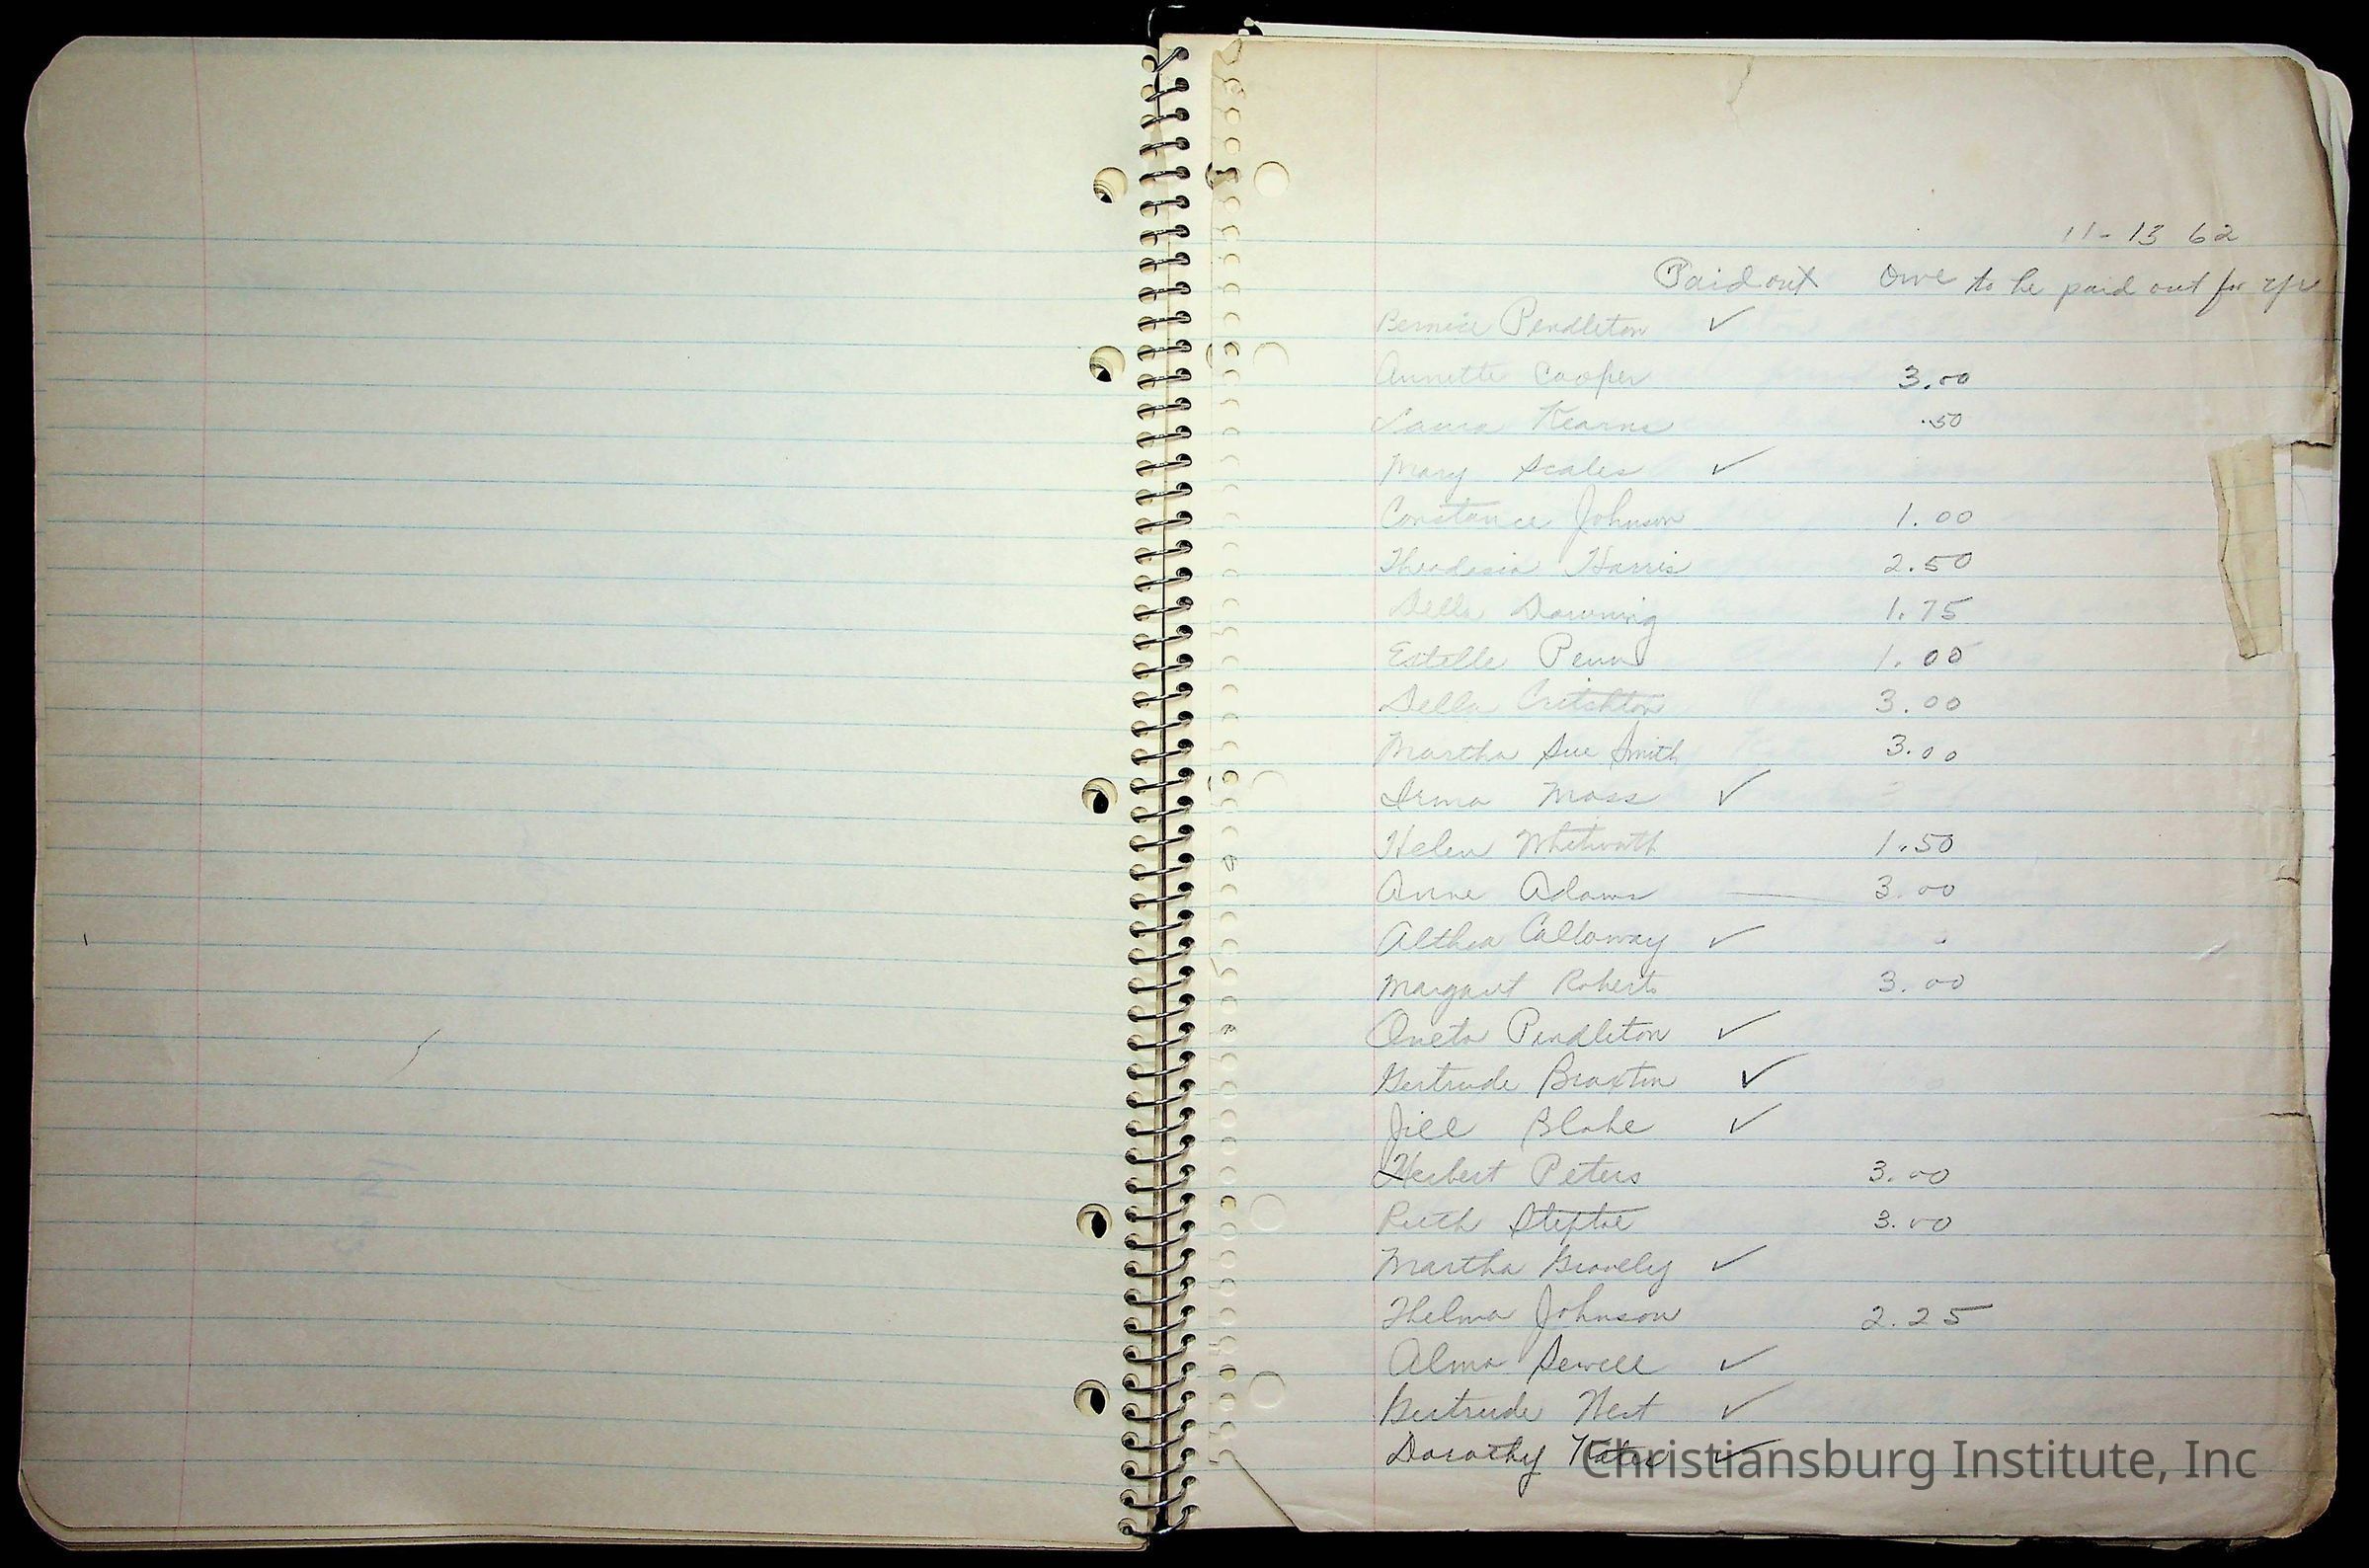 11-13 62
Paid out Owe to be paid out for
Bernice Pendleton ✓
Annette Cooper 3.00
Laura Kearns .50
Mary Scales ✓
Constance Johnson 1.00
Theodosia Harris 2.50
Della Downing 1.75
Estelle Penn 1.00
Della Critchton 3.00
Martha Sue Smith 3.00
Irma Moss ✓
Helen Whitworth 1.50
Anne Adams — 3.00
Althea Calloway ✓
Margaret Roberts 3.00
Oneta Pendleton ✓
Gertrude Braxton ✓
Jill Blake ✓
Herbert Peters 3.00
Ruth Steptoe 3.00
Martha Gravely ✓
Thelma Johnson 2.25
Alma Sewell ✓
Gertrude West ✓
Dorothy ✓
Christiansburg Institute, Inc